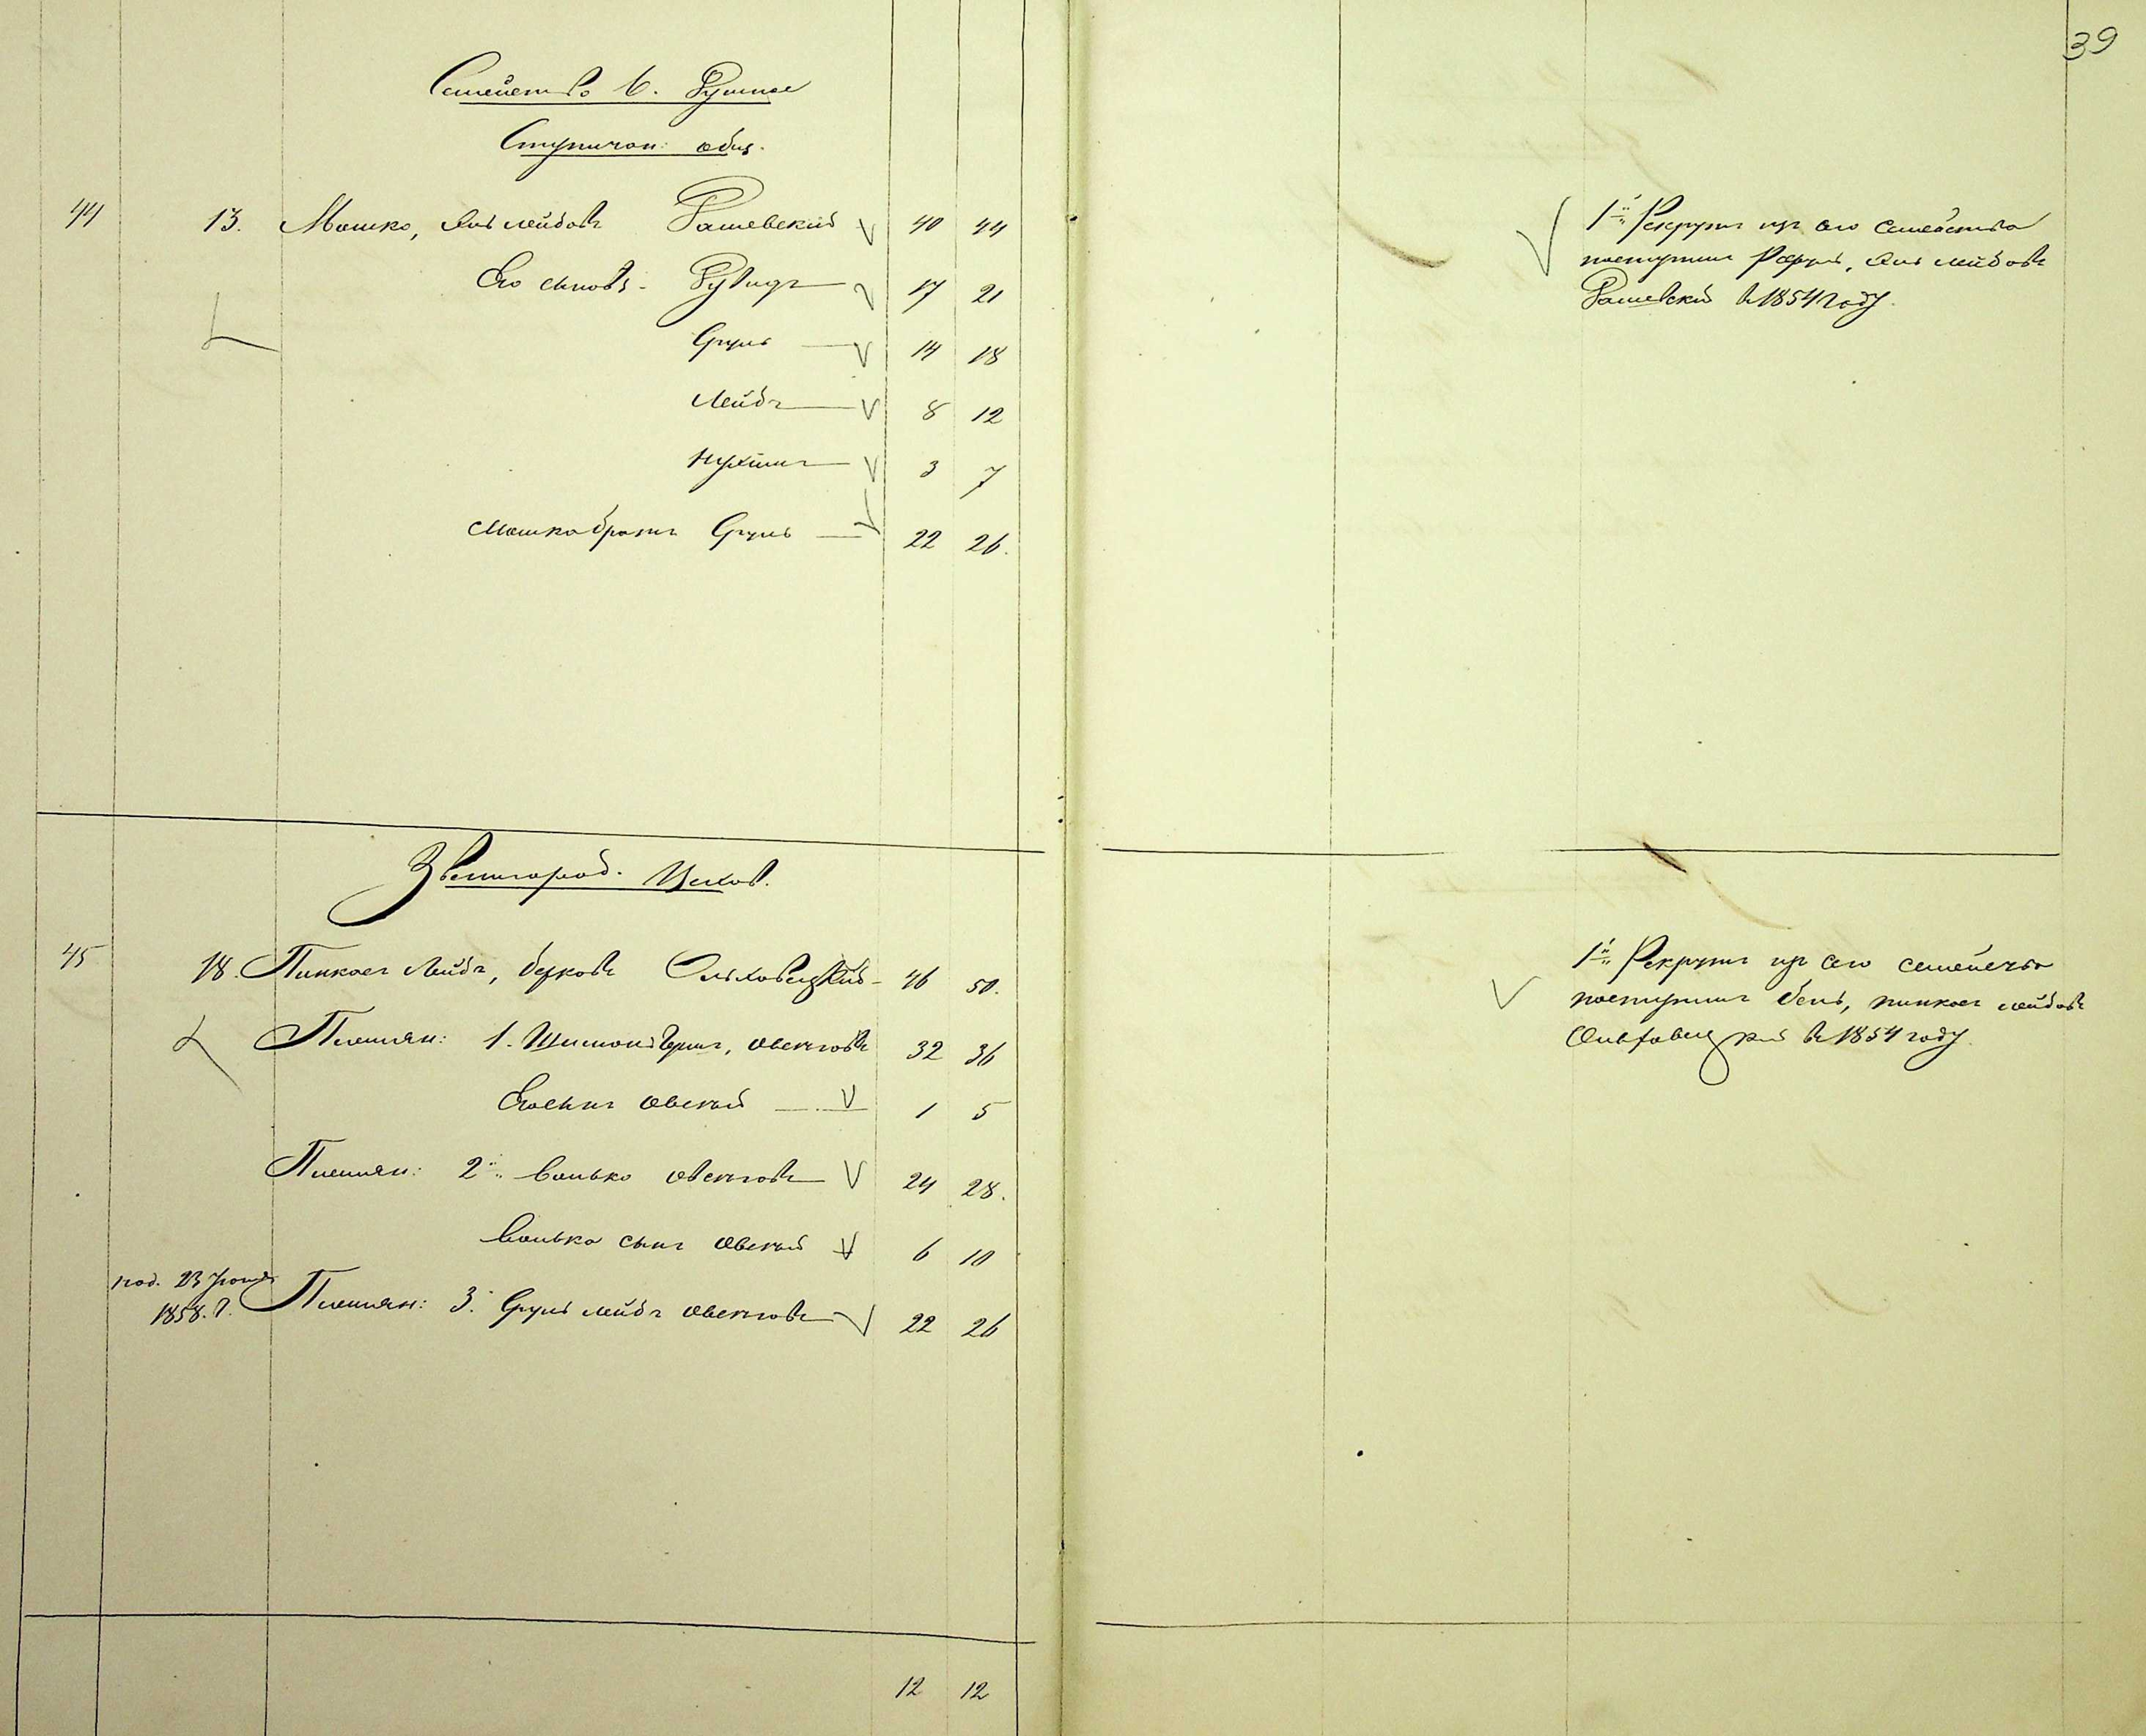 39
Семейство 6. Рушное
Ступичан: общ.
44 13. Мошко, Янкелйбовъ Рашевский 40 44
Его сыновья - Рувидъ 17 21
Сруль 14 18
Лейба 8 12
Нухимъ 3 7
Мошка братъ Сруль 22 26.
1й Рекрутъ изъ сего семейства
поступилъ лейбовъ
Рашевский в 1854 году.
Звенигород. Цехов.
45 18. Пинхасъ Лейба, Берковъ Ольховецкий - 46 50.
Племян: 1. Шимонъ овсеевъ 32 36
Его сынъ Овсей 1 5
Племян: 2й Волько овсеевъ 24 28.
Волька сынъ Овсей 6 10
23
1858. г. Племян: 3. Сруль лейба овсеевъ 22 26
1й Рекрутъ изъ сего семейства
поступилъ Бень, пинхасъ лейбовъ
Ольховецкий в 1854 году.
12 12